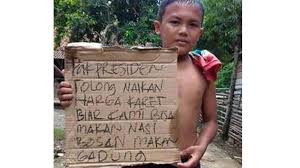 PAK PRESIDEN
TOLONG NAIKAN
HARGA KARET
BIAR KAMI BISA
MAKAN NASI
BOSAN MAKAN
GADUNG